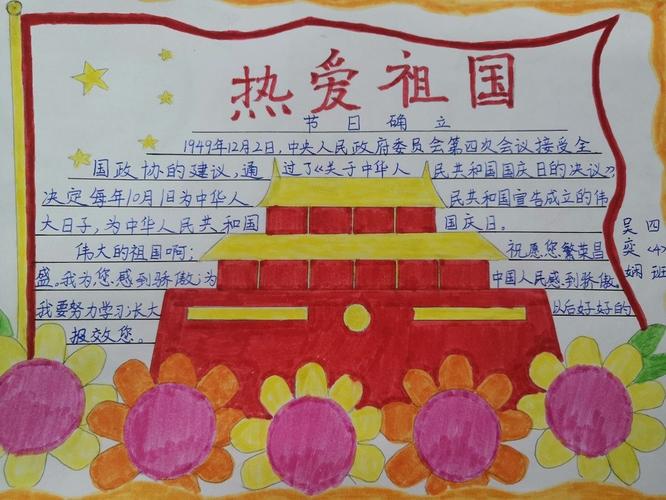 热爱祖国
节日确立
1949年12月2日,中央人民政府委员会第四次会议接受全
国政协的建议,通过了《关于中华人民共和国国庆日的决议》,
决定每年10月1日为中华人民共和国宣告成立的伟
大日子,为中华人民共和国国庆日。
伟大的祖国啊;祝愿您繁荣昌
盛。我为您感到骄傲;为中国人民感到骄傲。
我要努力学习;长大以后好好的
报效您。
四〈4〉班
吴奕娴